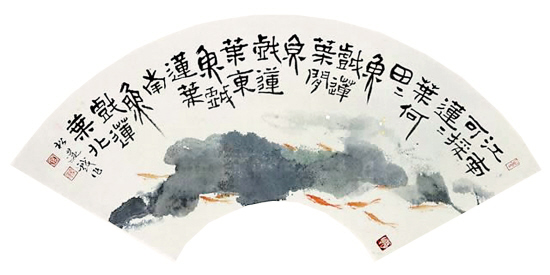 江南
可採
蓮〻
葉
何
田〻
魚
戲蓮
葉間
魚
戲蓮
葉東
魚戲
蓮葉
南
魚
戲蓮
葉北